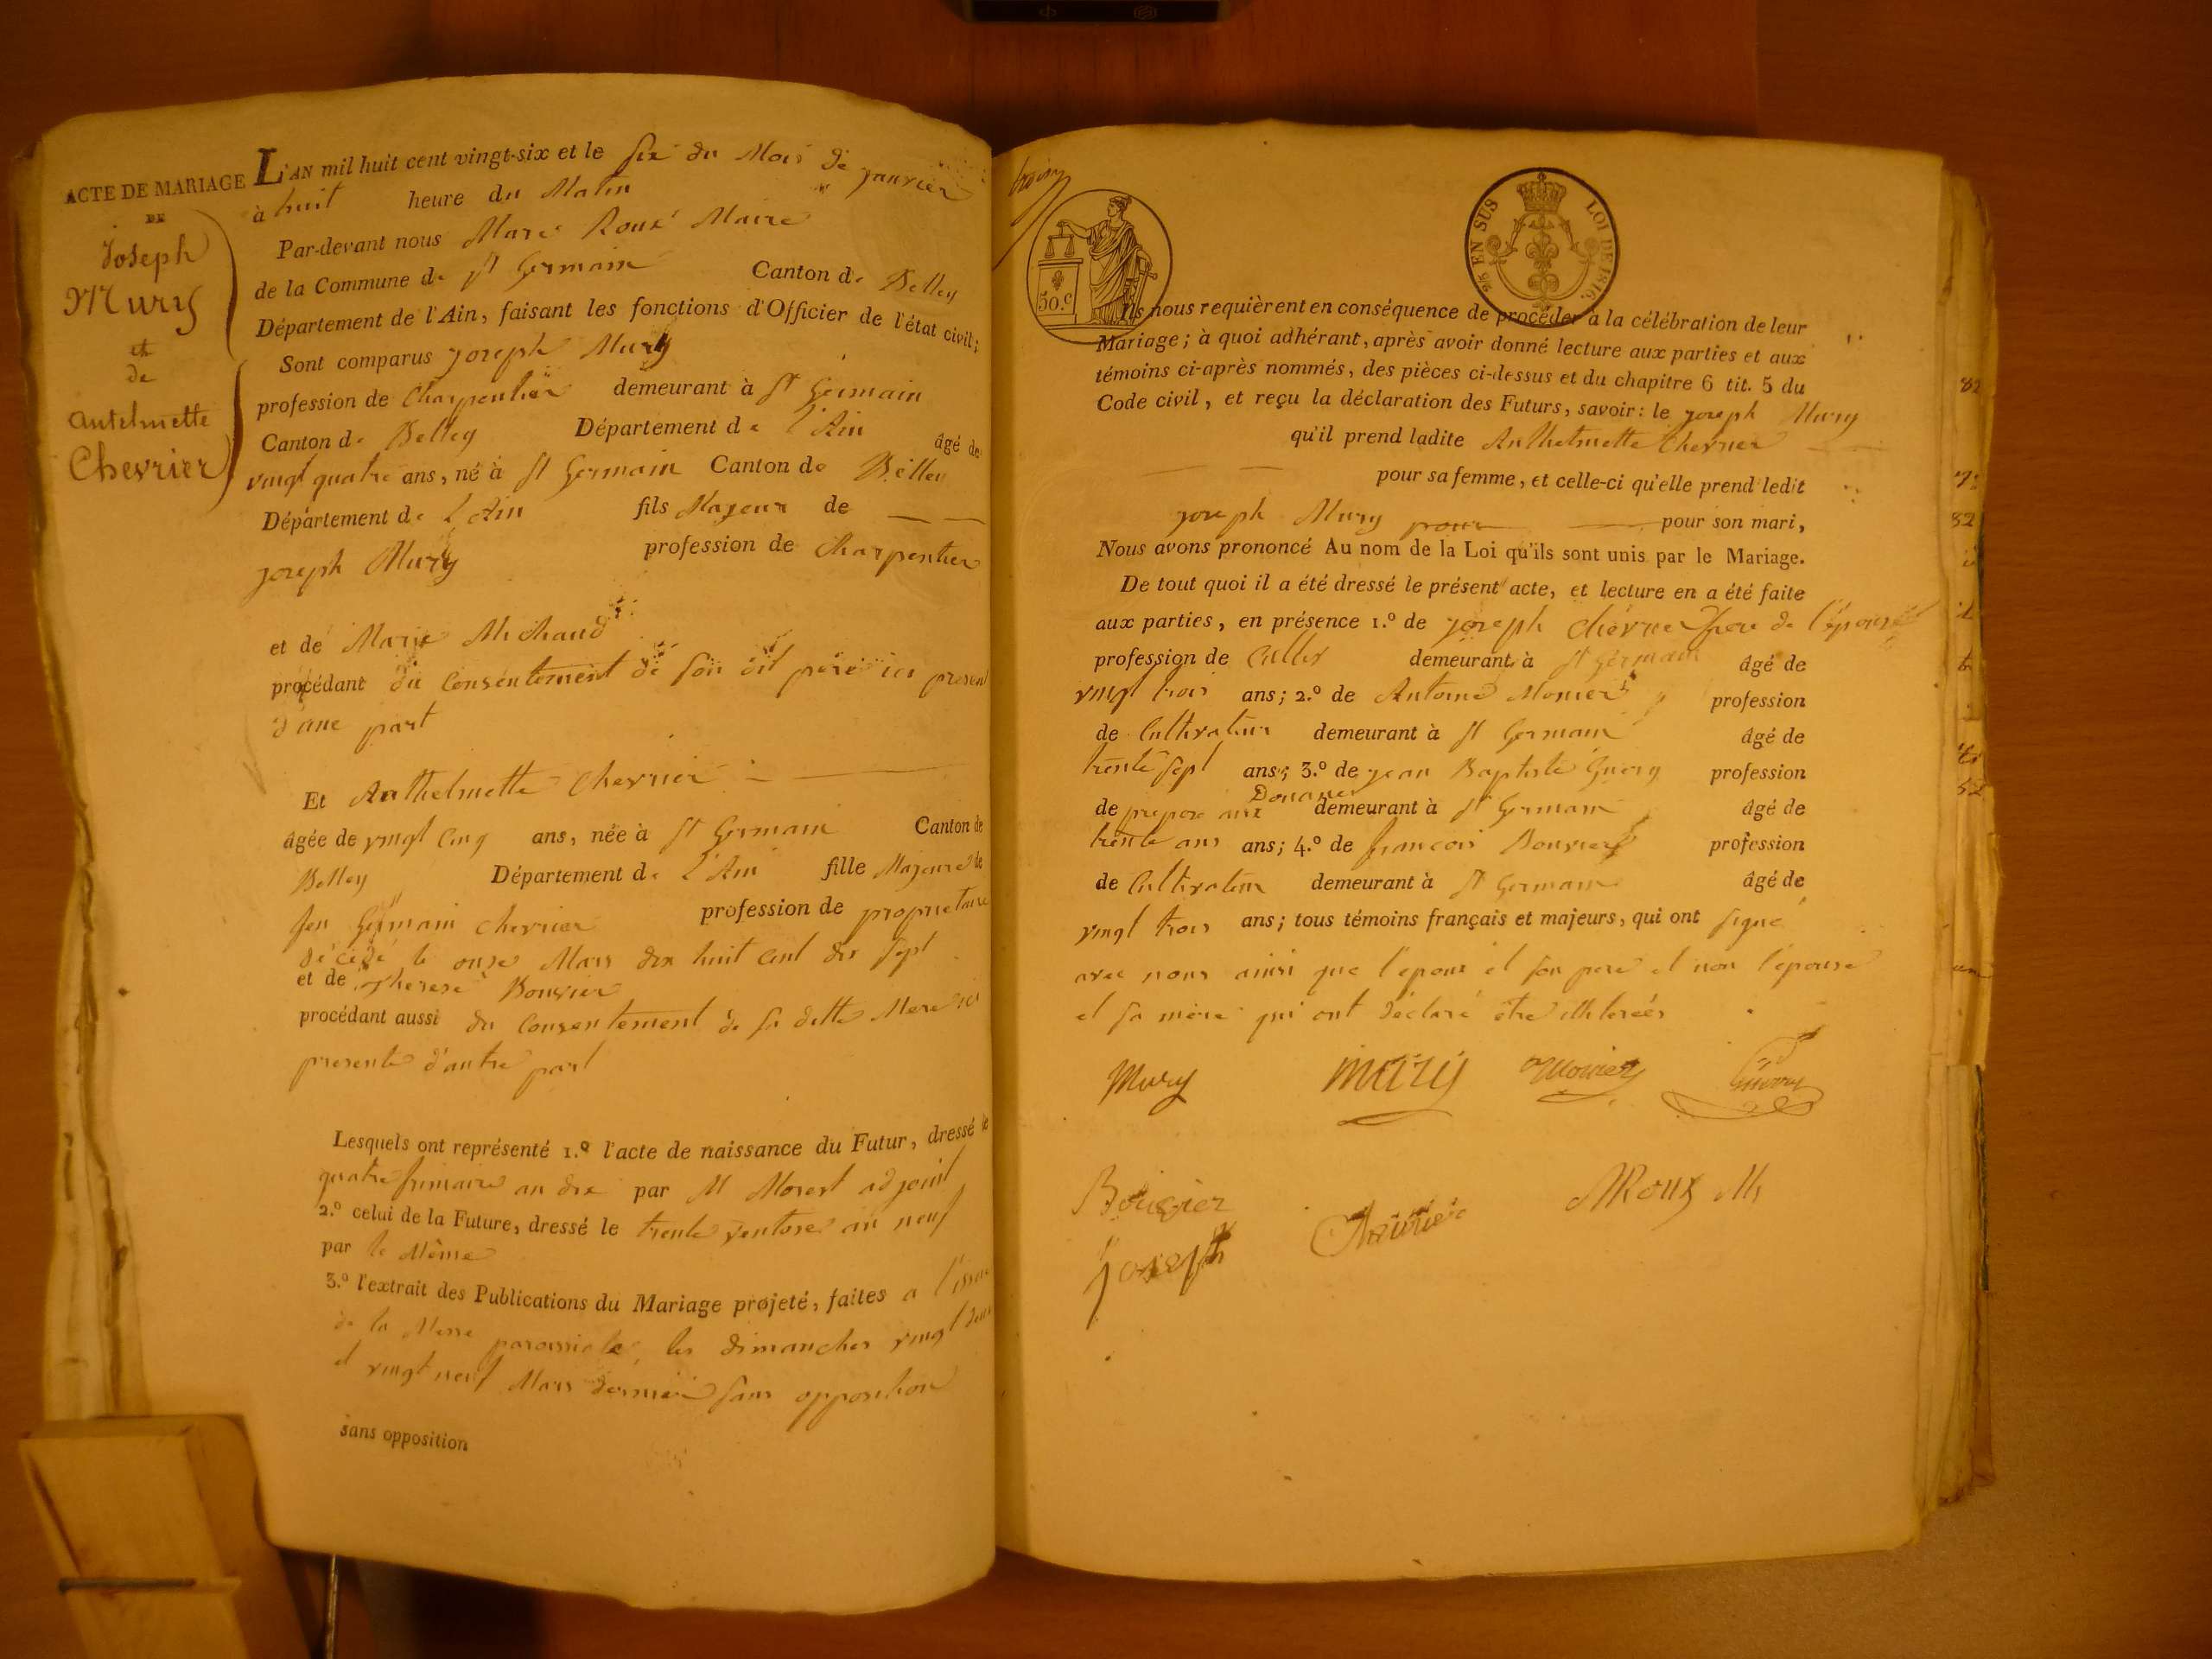 ACTE DE MARIAGE
DE
Joseph
Mury
et
de
antelmette
Chevrier
L'AN mil huit cent vingt-six et le six du Mois de janvier
à huit heure du Matin
Par-devant nous Marc Roux Maire
de la Commune de St Germain Canton de Belley
Département de l'Ain, faisant les fonctions d'Officier de l'état civil;
Sont comparus joseph Mury
profession de Charpentier demeurant à St Germain
Canton de Belley Département de l'Ain âgé de
vingt quatre ans, né à St Germain Canton de Belley
Département de l'Ain fils Majeur de
joseph Mury profession de charpentier
et de Marie Michaud
procédant du consentement de son dit père ici present
d'une part
Et Anthelmette Chevrier
âgée de vingt cinq ans, née à St Germain Canton de
Belley Département de l'Ain fille Majeure de
feu Germain chevrier profession de proprietaire
décédé le onze Mars dix huit cent dix sept
et de therese Bouvier
procédant aussi du consentement de sa ditte Mere ici
presente d'autre part
Lesquels ont représenté 1.º l'acte de naissance du Futur, dressé le
quatre frimaire an dix par M Morest adjoint
2.º celui de la Future, dressé le trente ventose an neuf
par le Même
3.º l'extrait des Publications du Mariage projeté, faites a l'issue
de la Messe paroissiale les dimanches vingt deux
et vingt neuf Mars dernier sans opposition
sans opposition
50.c
25 EN SUS LOI DE 1816.
Ils nous requièrent en conséquence de procéder à la célébration de leur
Mariage; à quoi adhérant, après avoir donné lecture aux parties et aux
témoins ci-après nommés, des pièces ci-dessus et du chapitre 6 tit. 5 du
Code civil, et reçu la déclaration des Futurs, savoir: le joseph Mury
qu'il prend ladite Anthelmette Chevrier
pour sa femme, et celle-ci qu'elle prend ledit
joseph Mury pour pour son mari,
Nous avons prononcé Au nom de la Loi qu'ils sont unis par le Mariage.
De tout quoi il a été dressé le présent acte, et lecture en a été faite
aux parties, en présence 1.º de joseph chevrier frere de l'épouse
profession de Cultr demeurant à St Germain âgé de
vingt trois ans; 2.º de Antoine Monier profession
de Cultivateur demeurant à St Germain âgé de
trente sept ans; 3.º de jean Baptiste Guerry profession
de preposé aux Douanes demeurant à St Germain âgé de
trente ans ans; 4.º de francois Bouvier profession
de Cultivateur demeurant à St Germain âgé de
vingt trois ans; tous témoins français et majeurs, qui ont signé
avec nous ainsi que l'epoux et son pere et non l'epouse
et sa mere qui ont déclaré etre illiterées
Mury mury Monier Guerry
Bouvier
joseph Chevrier MRoux M